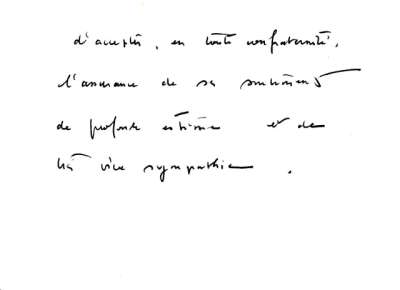 d'accepter, en toute confraternité,
l'assurance de ses sentiments
de profonde estime et de
très vive sympathie.